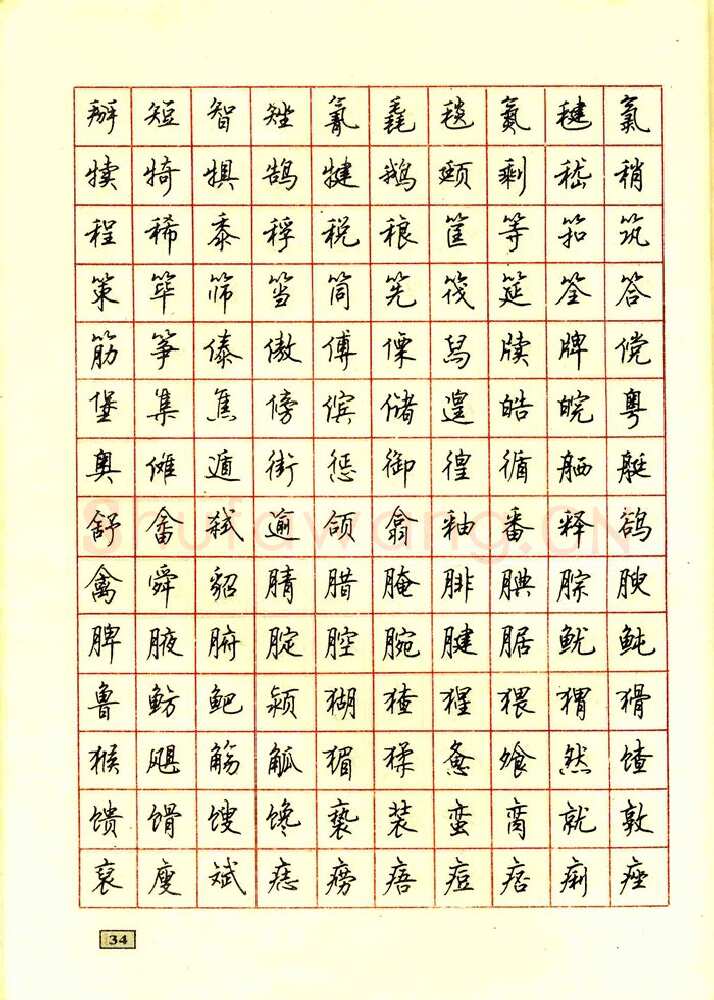 掰短智矬氰毳毯氮毽氯
犊犄犋鹄犍鹅颋剩嵇稍
程稀黍稃税稂筐等筘筑
策筚筛筜筒筅筏筵筌答
筋筝傣傲傅傈舄牍牌傥
堡集焦傍傧储遑皓皖粤
奥傩遁街惩御徨循舾艇
舒畲弑逾颌翕釉番释鹆
禽舜貂腈腊腌腓腆腙腴
脾腋腑腚腔腕腱腒鱿鲀
鲁鲂鲃颍猢猹猩猥猬猾
猴飓觞觚猸猱惫飧然馇
馈馉馊馋亵装蛮脔就敦
裒廋斌痣痨痦痘痞痢痤
34
Shufawang.CN